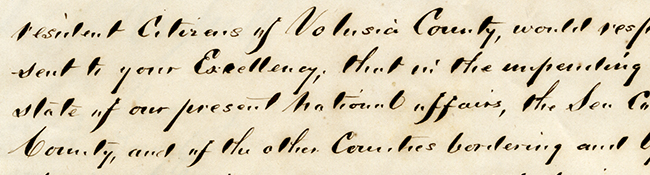 resident Citizens of Volusia County, would resp
sent to your Excellency, that in the impending
state of our present National affairs, the Sea
County, and of the other Counties bordering and